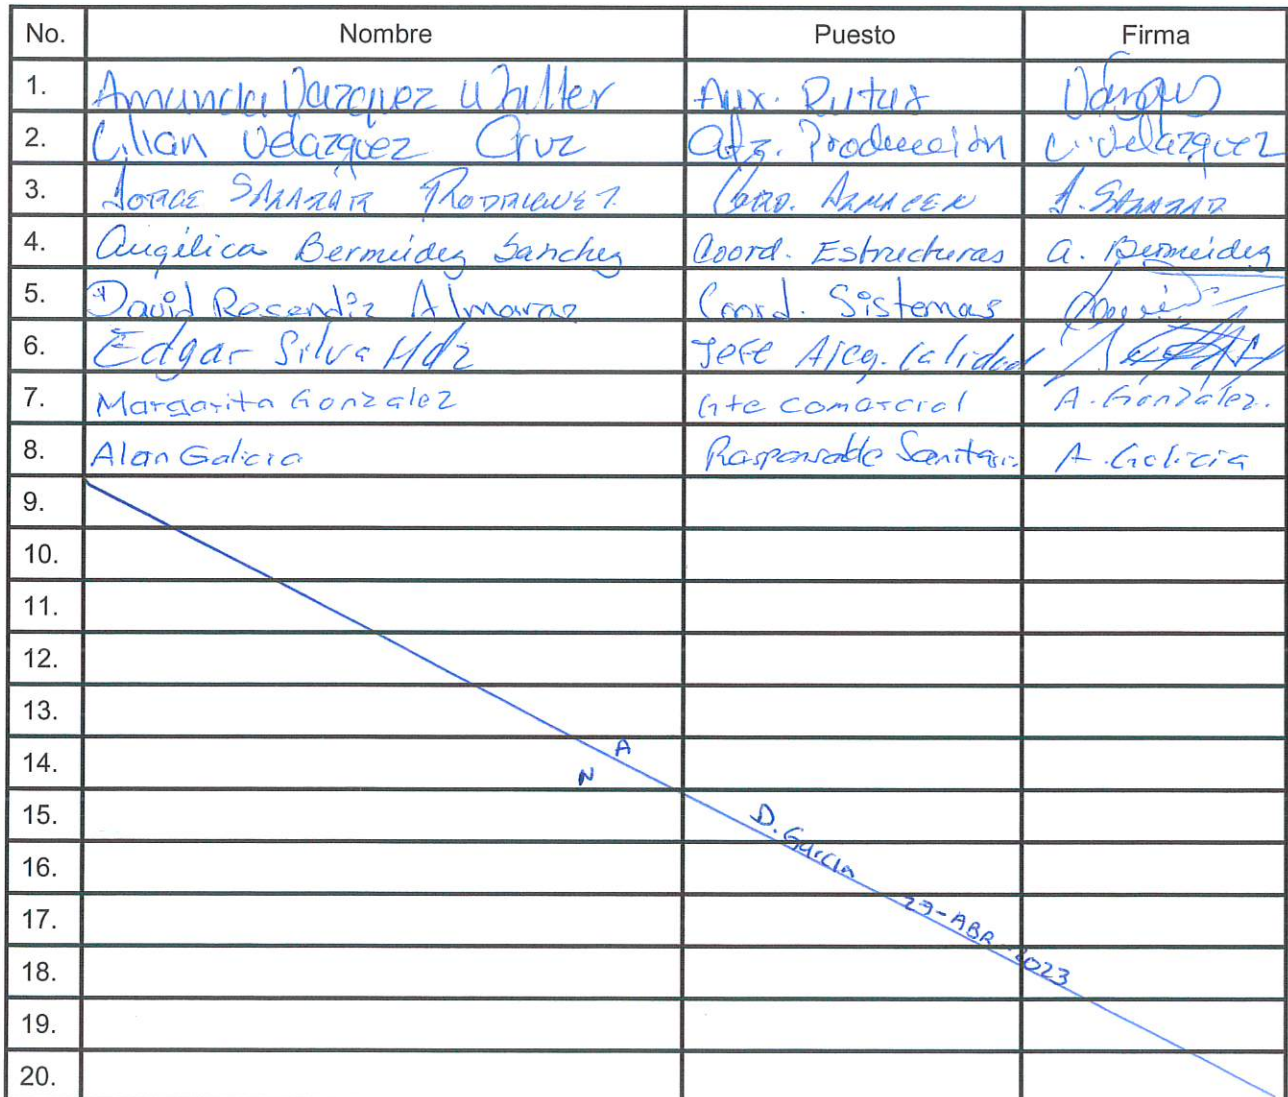 No. Nombre Puesto Firma
1. Amanda Vazquez Walter Aux. Rutas Vázquez
2. Lilian Velazquez Cruz Producción L. Velazquez
3. JORGE SALAZAR RODRIGUEZ COORD. ALMACEN J. SALAZAR
4. Angélica Bermúdez Sanchez Coord. Estructuras A. Bermúdez
5. David Resendiz Almaraz Coord. Sistemas
6. Edgar Silva Hdz Jefe Calidad
7. Margarita Gonzalez Gte Comercial A. González.
8. Alan Galicia Responsable Sanitari. A. Galicia
9.
10.
11.
12.
13.
14. N A
15. D. García
16.
17. 23-ABR-2023
18.
19.
20.